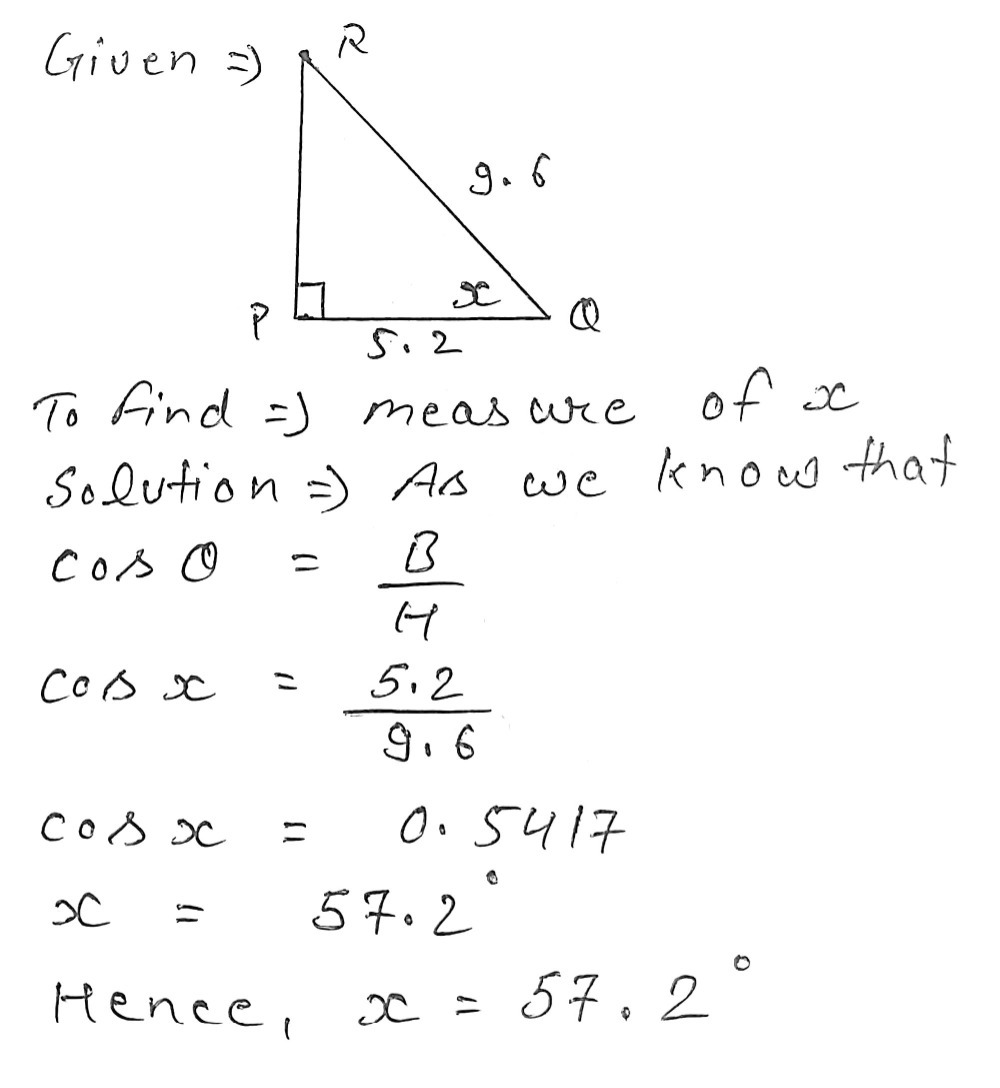 Given ⇒ R
9.6
x
P Q
5.2
To find ⇒ measure of x
Solution ⇒ As we know that
cos θ = B
H
cos x = 5.2
9.6
cos x = 0.5417
x = 57.2°
Hence, x = 57.2°